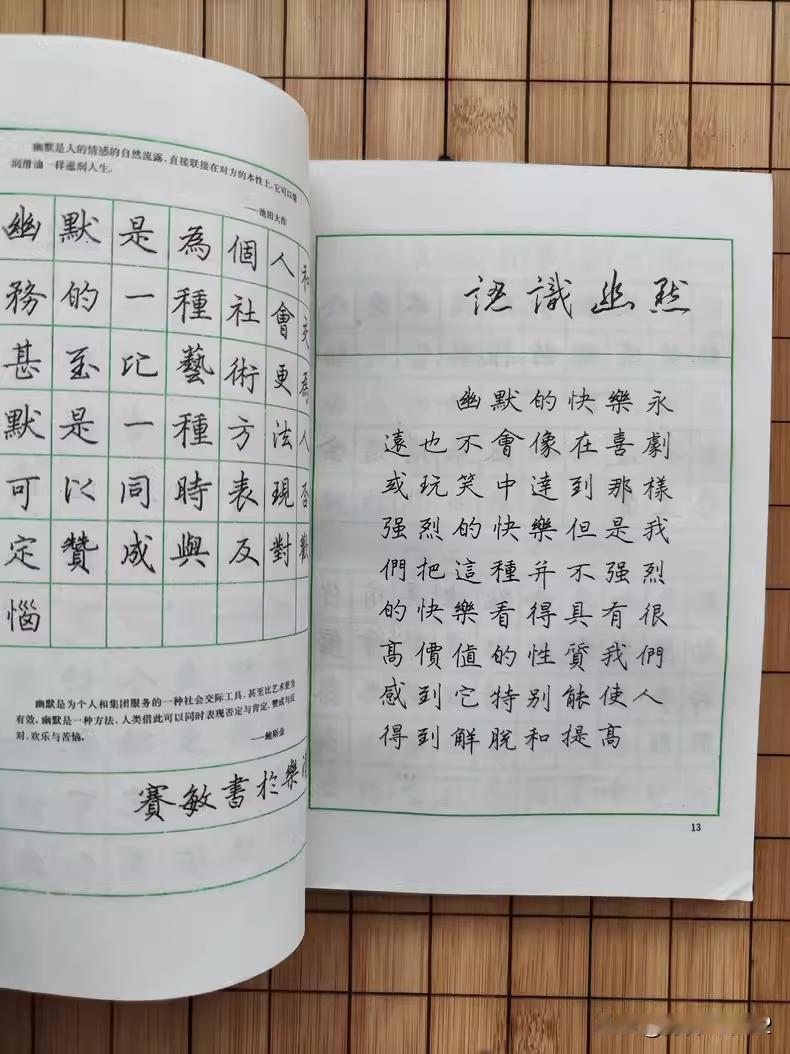 幽默是人的情感的自然流露，直接联接在对方的本性上，它可以像
润滑油一样滋润人生。
——池田大作
幽默是為個人和
務的一種社會交
甚至比藝術更為
默是一種方法人
可以同時表現否
定贊成與反對歡
惱
幽默是为个人和集团服务的一种社会交际工具，甚至比艺术更为
有效。幽默是一种方法，人类借此可以同时表现否定与肯定、赞成与反
对、欢乐与苦恼。
——鲍斯金
賽敏書於樂清
認識幽默
幽默的快樂永
遠也不會像在喜劇
或玩笑中達到那樣
强烈的快樂但是我
們把這種并不强烈
的快樂看得具有很
高價值的性質我們
感到它特别能使人
得到解脱和提高
13